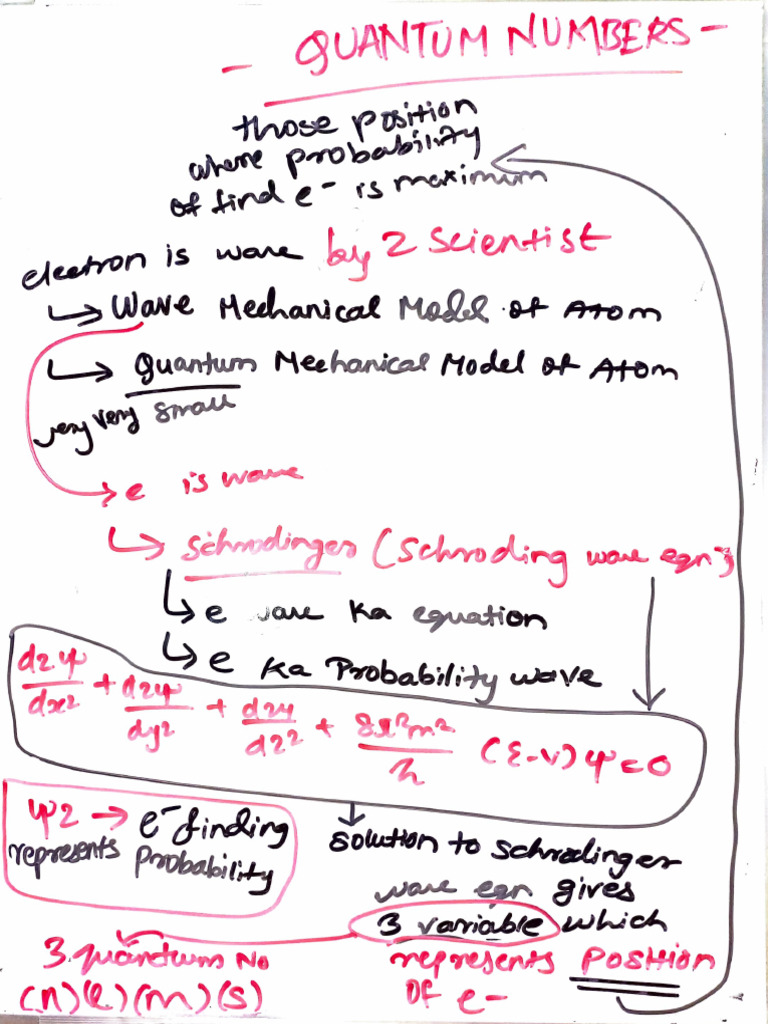 - QUANTUM NUMBERS -
those position
where probability
of find e- is maximum
electron is wave by 2 Scientist
↳ Wave Mechanical Model of Atom
↳ Quantum Mechanical Model of Atom
very very small
e is wave
↳ schrodinger (Schroding wave eqn)
↳ e wave ka equation
↳ e ka Probability wave
d2ψ/dx2 + d2ψ/dy2 + d2ψ/dz2 + 8π2m2/h (E-v) ψ=0
ψ2 → e- finding
represents probability
solution to schrodinger
wave eqn gives
3 variable which
represents position
of e-
3 quantum No
(n)(l)(m)(s)